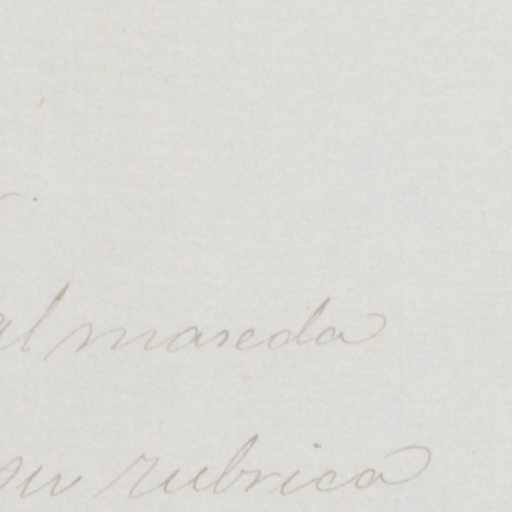 al maseda
su rubrica